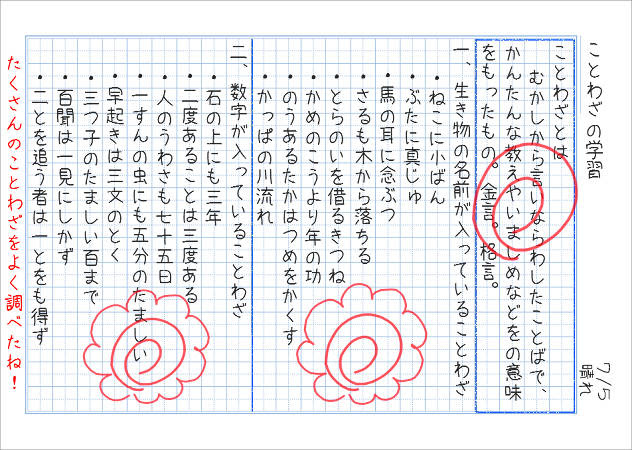 ことわざの学習
7/5
晴れ
ことわざとは
むかしから言いならわしたことばで、
かんたんな教えやいましめなどをの意味
をもったもの。金言。格言。
一、生き物の名前が入っていることわざ
・ねこに小ばん
・ぶたに真じゅ
・馬の耳に念ぶつ
・さるも木から落ちる
・とらのいを借るきつね
・かめのこうより年の功
・のうあるたかはつめをかくす
・かっぱの川流れ
二、数字が入っていることわざ
・石の上にも三年
・二度あることは三度ある
・人のうわさも七十五日
・一すんの虫にも五分のたましい
・早起きは三文のとく
・三つ子のたましい百まで
・百聞は一見にしかず
・二とを追う者は一とをも得ず
たくさんのことわざをよく調べたね!